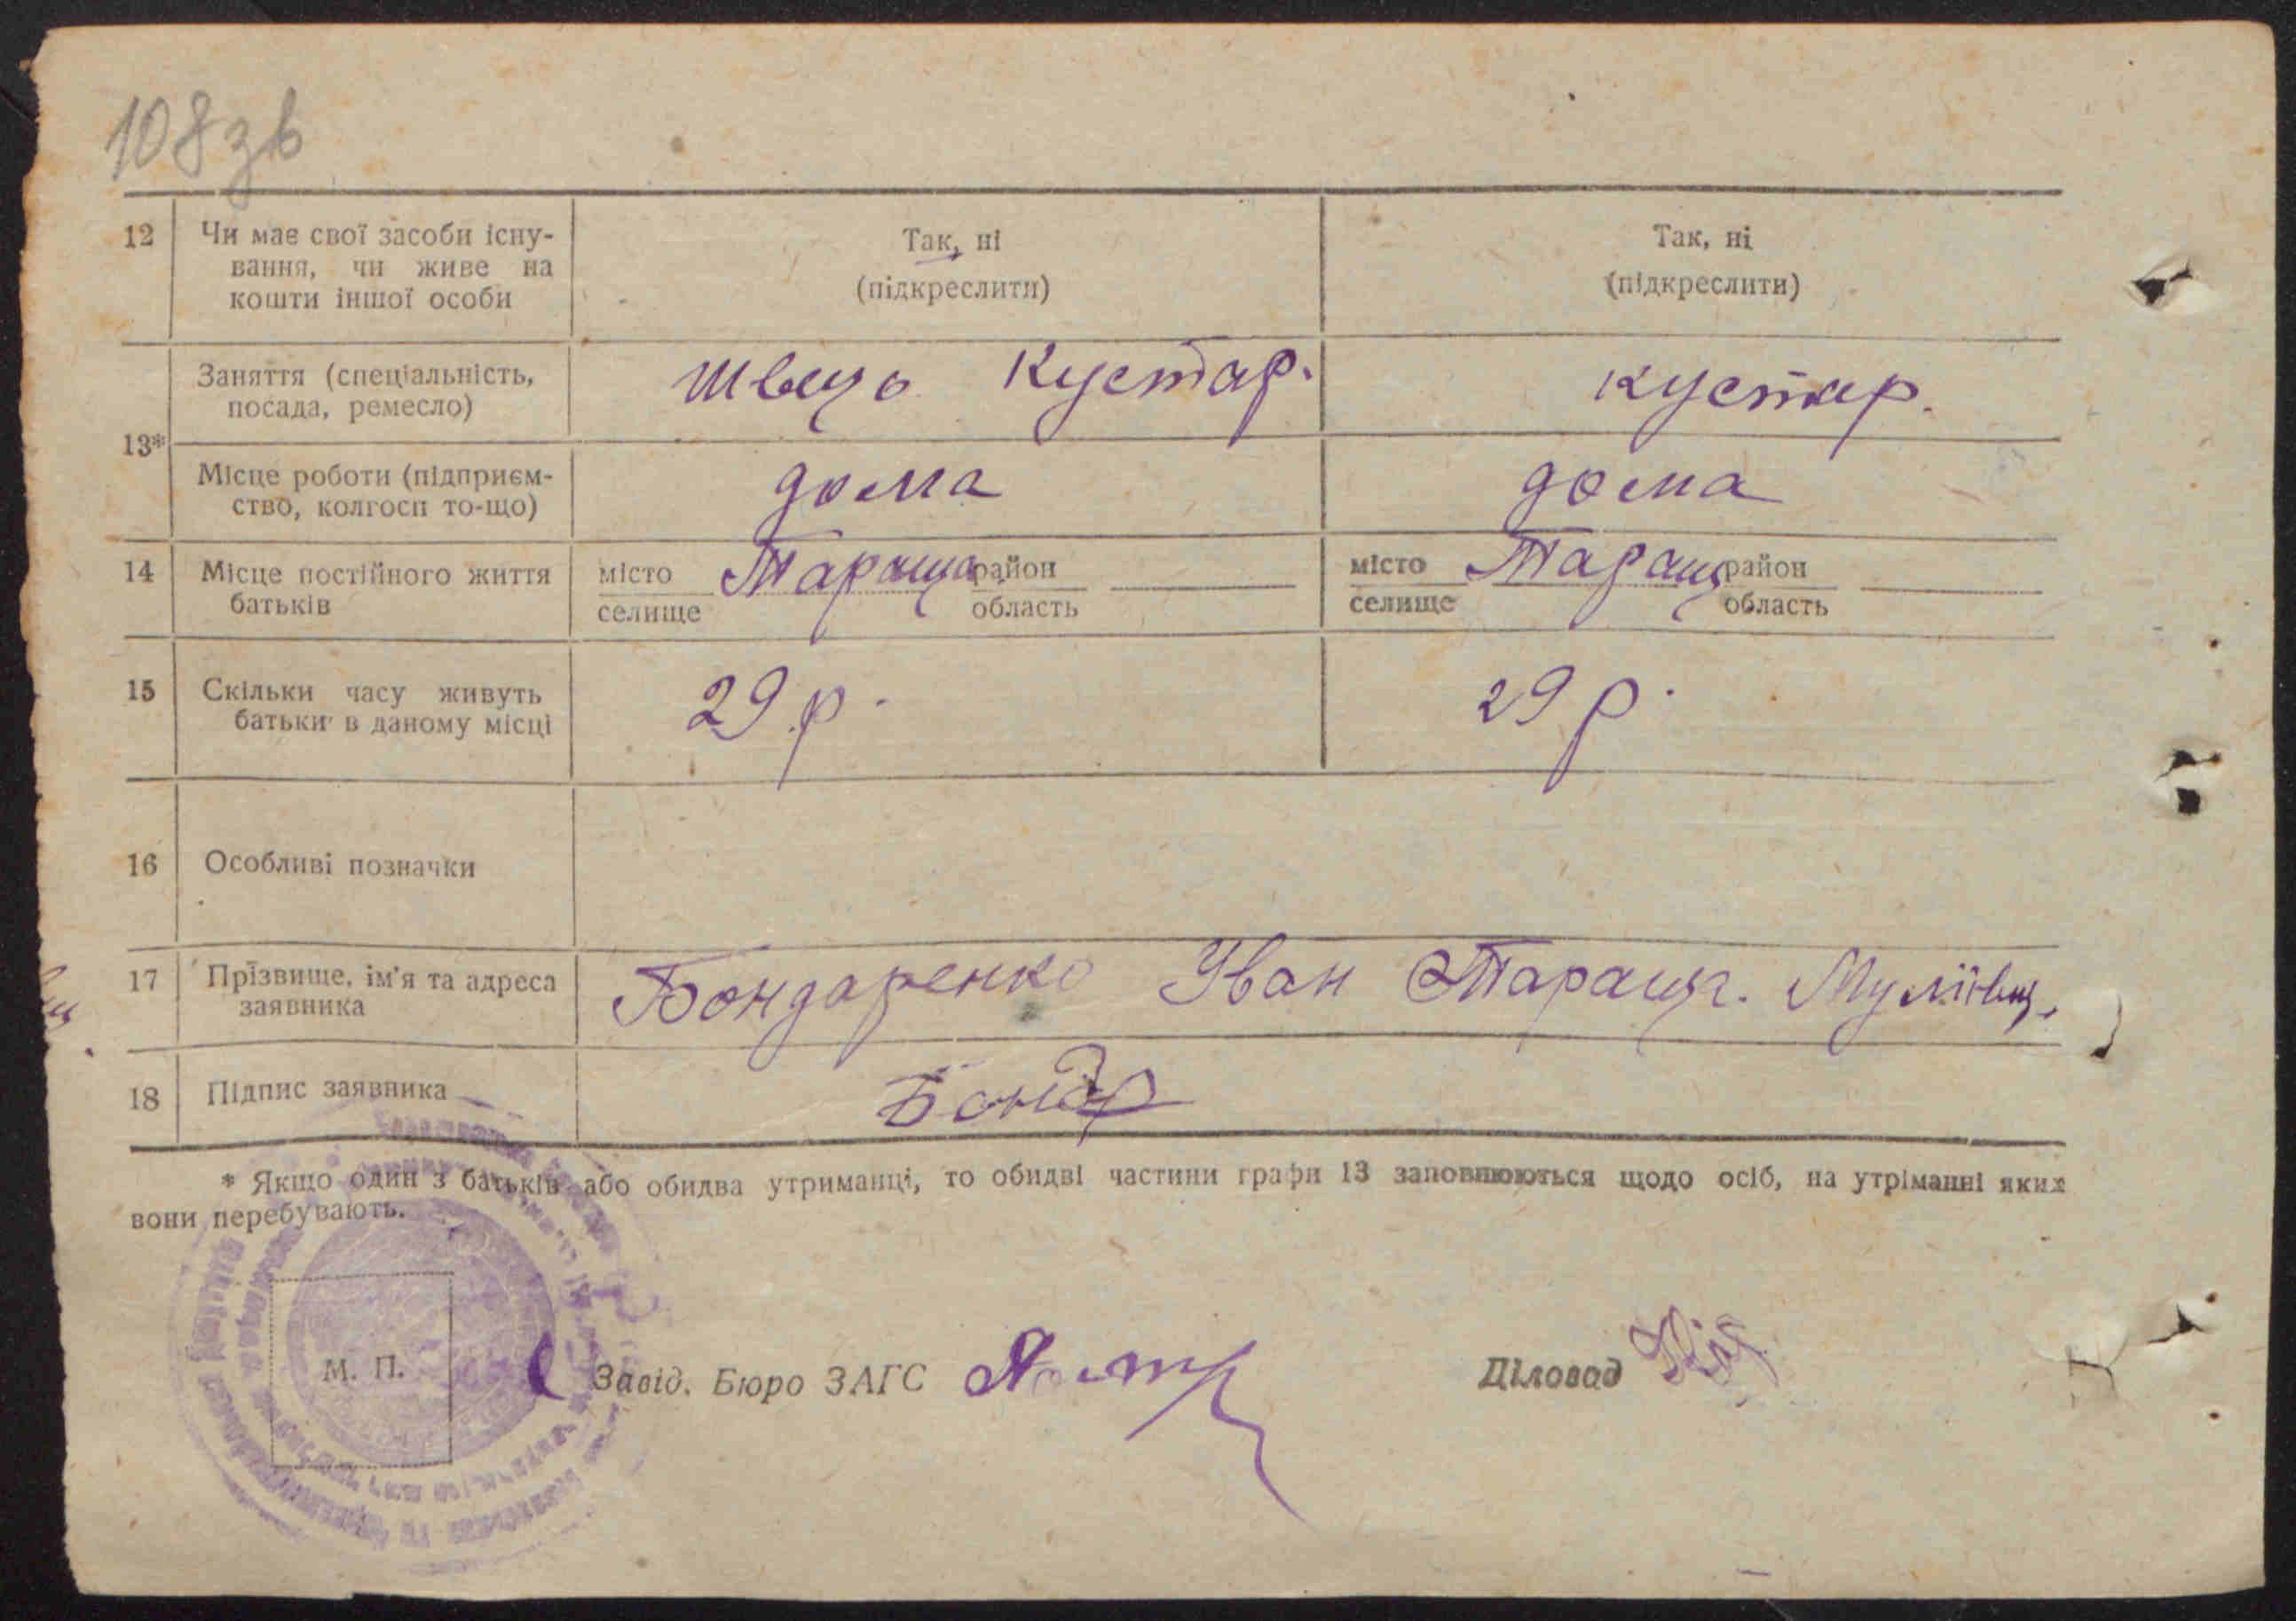 108 зв
12 Чи має свої засоби існу- Так, ні Так, ні
вання, чи живе на (підкреслити) (підкреслити)
кошти іншої особи
13* Заняття (спеціальність, швець Кустар. кустар.
посада, ремесло)
Місце роботи (підприєм- дома дома
ство, колгосп то-що)
14 Місце постійного життя місто Тараща район місто Таращ район
батьків селище область селище область
15 Скільки часу живуть 29 р. 29 р.
батьки в даному місці
16 Особливі позначки
17 Прізвище, ім'я та адреса Бондаренко Іван Тараща.
заявника
18 Підпис заявника Бондр
* Якщо один з батьків або обидва утриманці, то обидві частини графи 13 заповнюються щодо осіб, на утріманні яких
вони перебувають.
М. П. Завід. Бюро ЗАГС Діловод